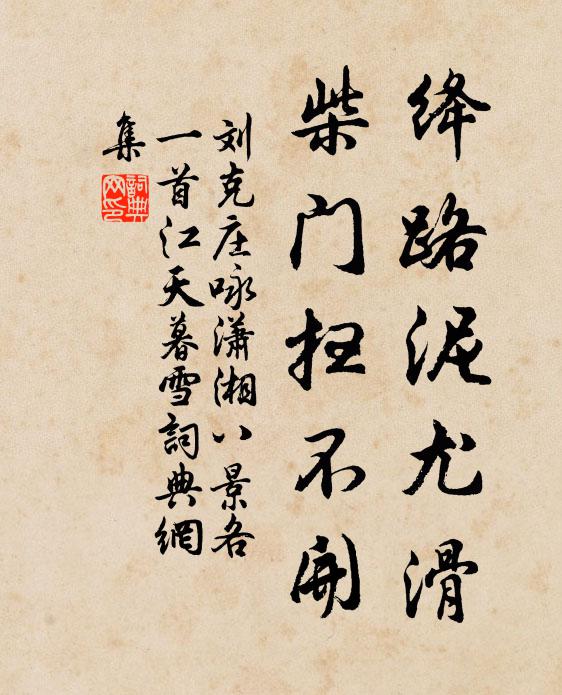 绛路泥尤滑
柴门扫不开
刘克庄咏潇湘八景各
一首江天暮雪詞典網
集
詞典
网印